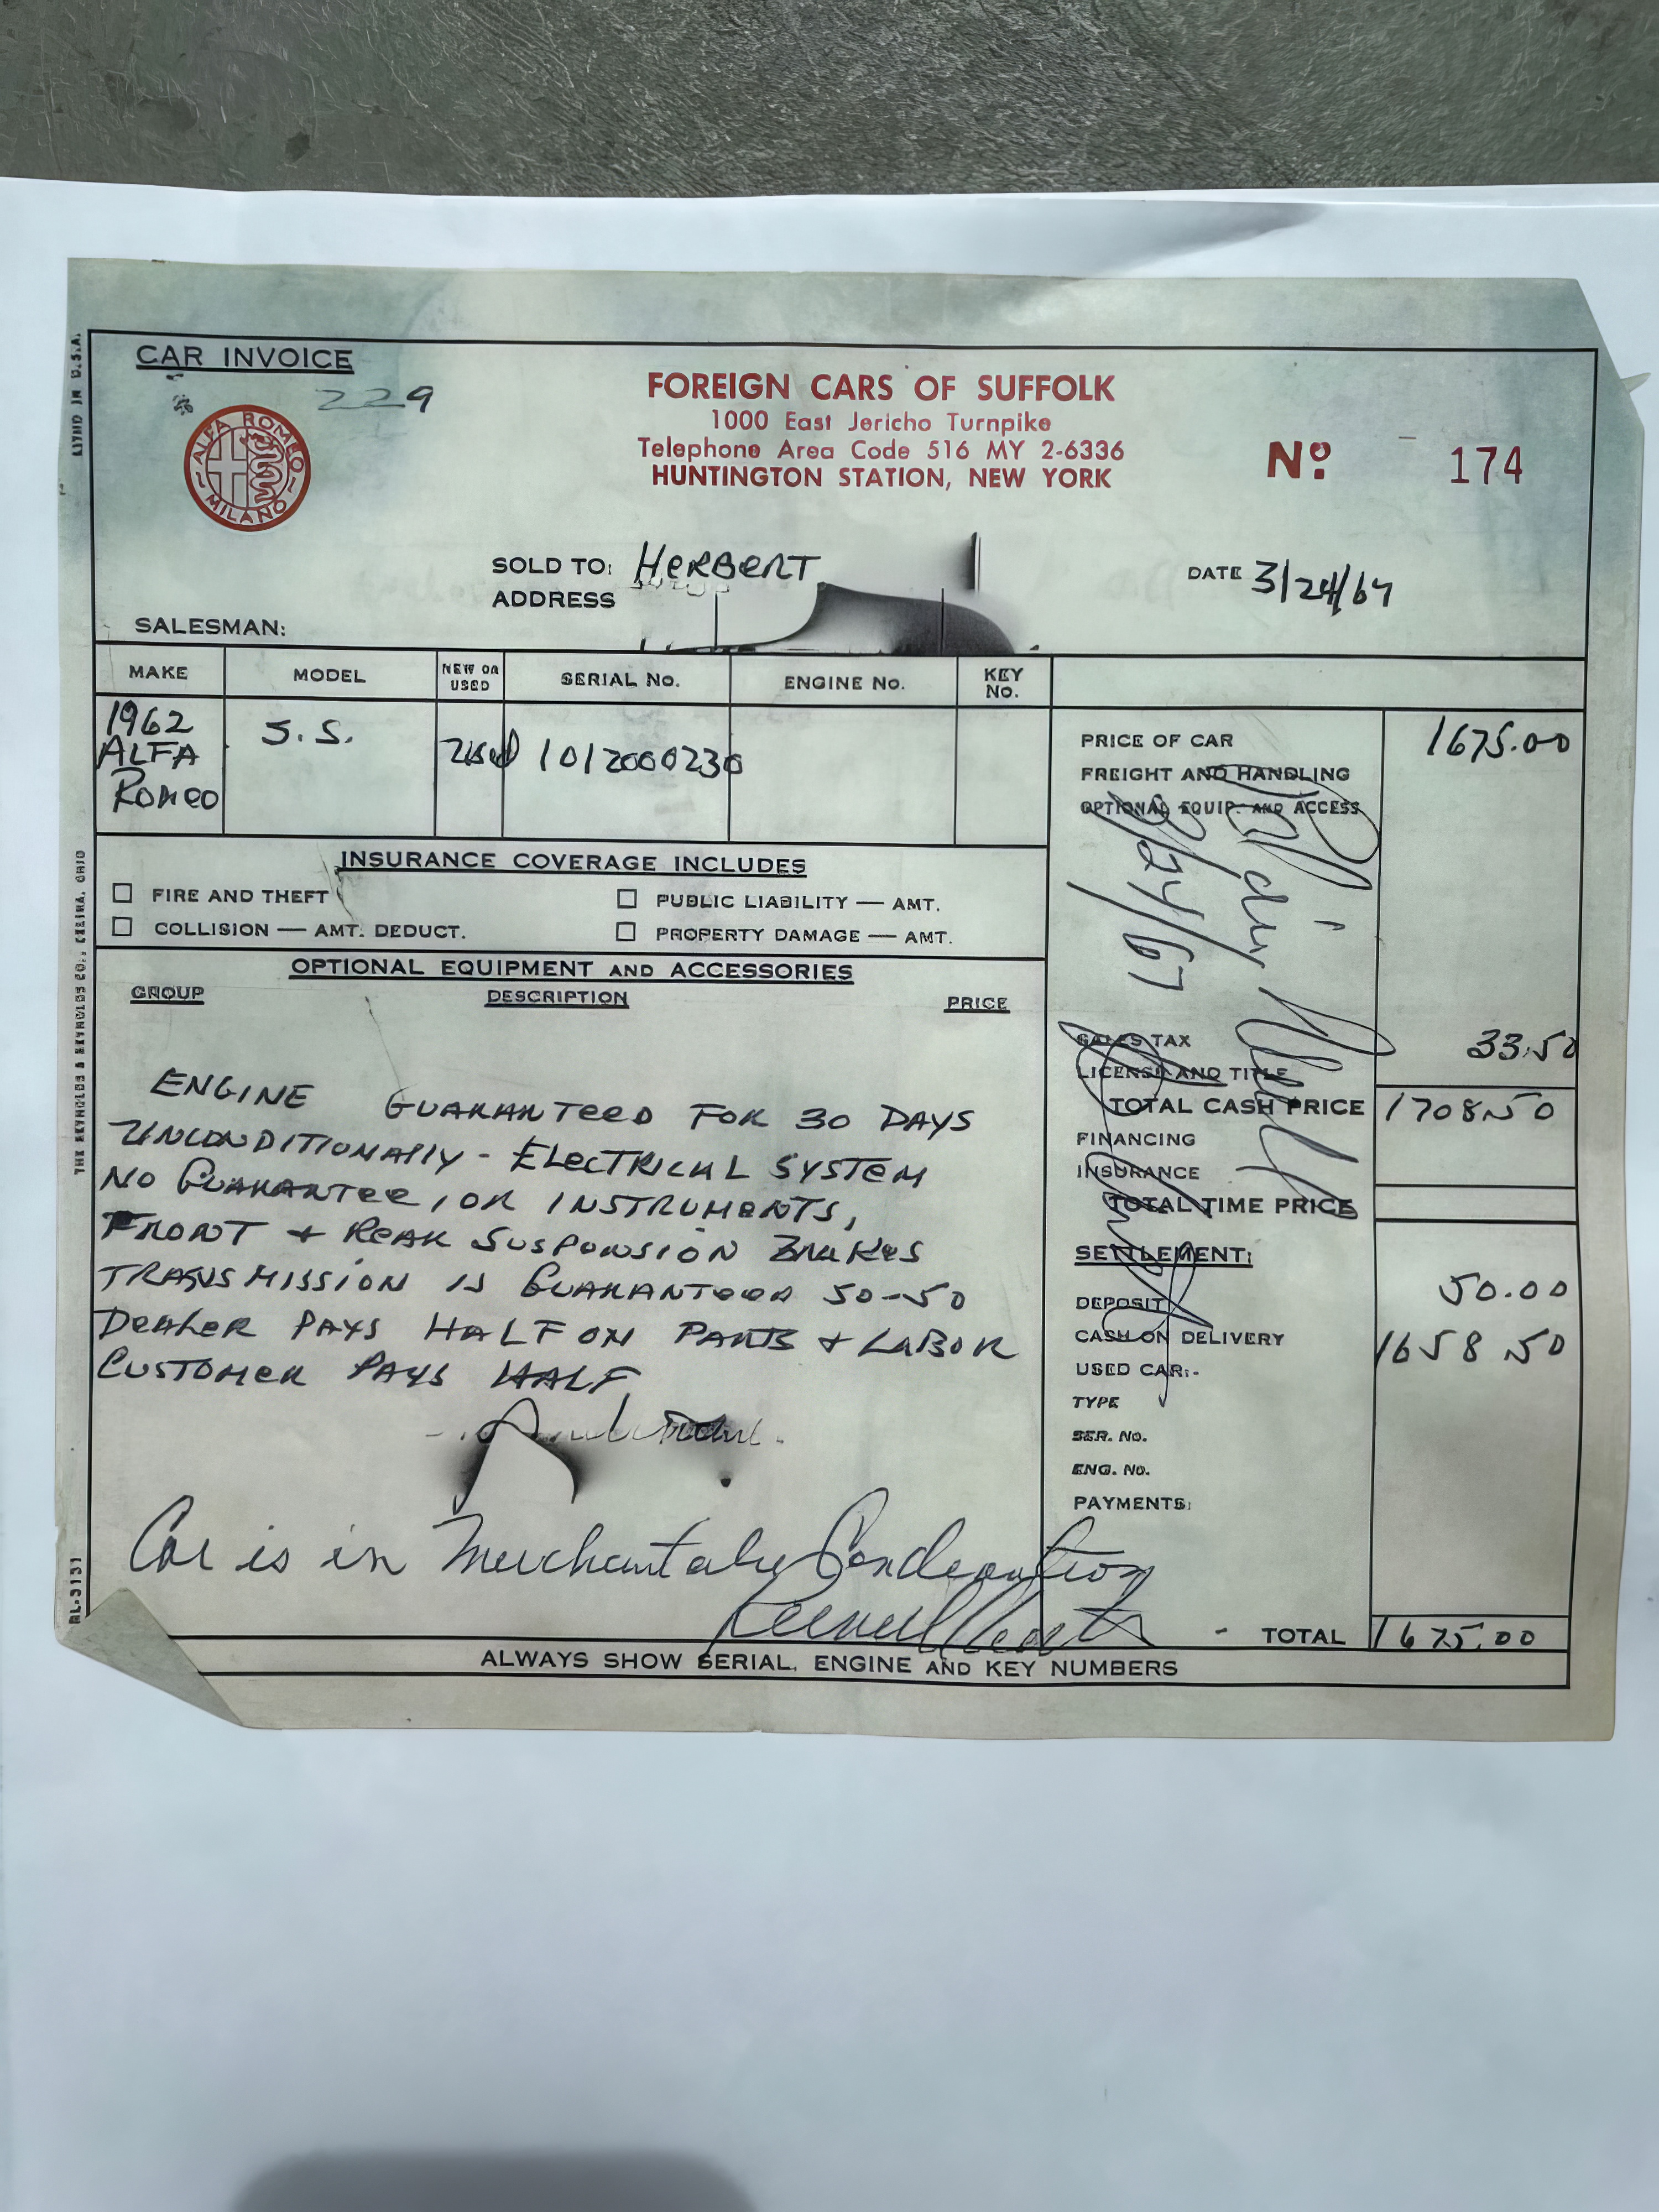 CAR INVOICE
229
ALFA ROMEO
MILANO
FOREIGN CARS OF SUFFOLK
1000 East Jericho Turnpike
Telephone Area Code 516 MY 2-6336
HUNTINGTON STATION, NEW YORK
Nº 174
SOLD TO: HERBERT
DATE 3/24/67
ADDRESS
SALESMAN:
MAKE MODEL NEW OR USED SERIAL NO. ENGINE NO. KEY NO.
1962 ALFA ROMEO S.S. Used 1012000230
PRICE OF CAR 1675.00
FREIGHT AND HANDLING
OPTIONAL EQUIP. AND ACCESS
Paid in full
3/24/67
INSURANCE COVERAGE INCLUDES
FIRE AND THEFT PUBLIC LIABILITY — AMT.
COLLISION — AMT. DEDUCT. PROPERTY DAMAGE — AMT.
OPTIONAL EQUIPMENT AND ACCESSORIES
GROUP DESCRIPTION PRICE
ENGINE GUARANTEED FOR 30 DAYS
UNCONDITIONALLY - ELECTRICAL SYSTEM
NO GUARANTEE, OR INSTRUMENTS,
FRONT + REAR SUSPONSION BRAKES
TRANSMISSION IS GUARANTEED 50-50
DEALER PAYS HALF ON PARTS + LABOR
CUSTOMER PAYS HALF
Car is in
SALES TAX 33.50
LICENSE AND TITLE
TOTAL CASH PRICE 1708.50
FINANCING
INSURANCE
TOTAL TIME PRICE
SETTLEMENT:
DEPOSIT 50.00
CASH ON DELIVERY 1658.50
USED CAR:-
TYPE
SER. NO.
ENG. NO.
PAYMENTS:
TOTAL 1675.00
ALWAYS SHOW SERIAL, ENGINE AND KEY NUMBERS
THE REYNOLDS & REYNOLDS CO., CELINA, OHIO
RL-3131